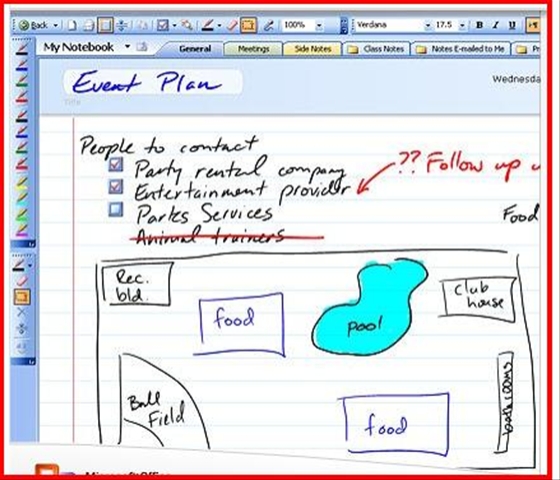 Back 100% Verdana 17.5 B I U
My Notebook General Meetings Side Notes Class Notes Notes E-mailed to Me
Event Plan
Title
Wednesda
People to contact
Party rental company
?? Follow up
Entertainment provider
Parks Services
Food
Animal trainers
Rec.
bld.
Club
house
food
pool
Ball
Field
food
bathrooms
Microsoft Office